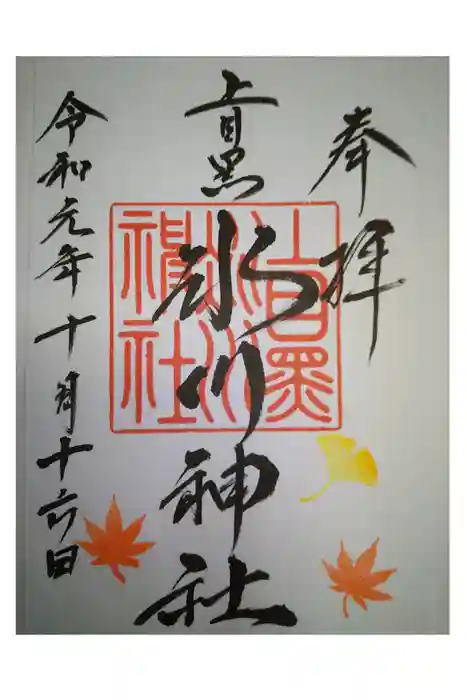 奉拝
上目黒氷川神社
上目黒氷川神社
令和元年十月十六日